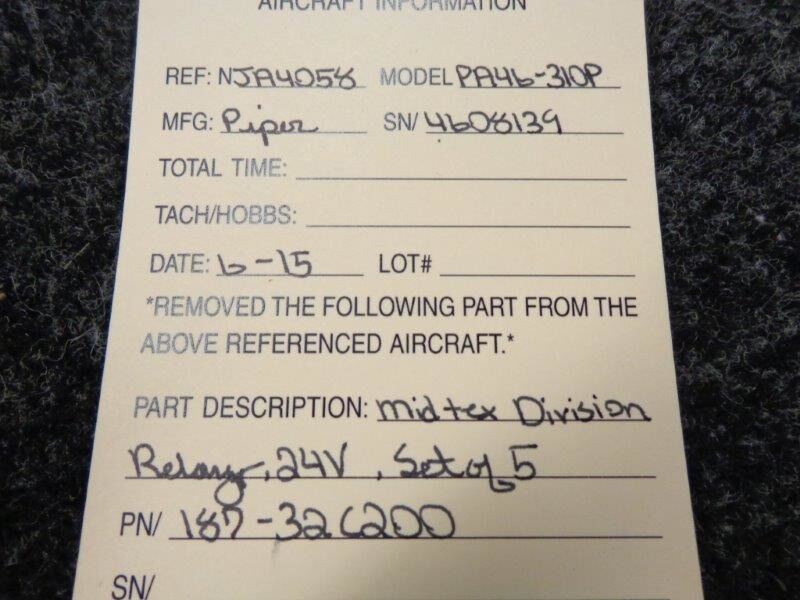 AIRCRAFT INFORMATION
REF: NJA4058 MODEL PA46-310P
MFG: Piper SN/ 4608139
TOTAL TIME:
TACH/HOBBS:
DATE: 6-15 LOT#
*REMOVED THE FOLLOWING PART FROM THE
ABOVE REFERENCED AIRCRAFT.*
PART DESCRIPTION: Midtex Division
Relay, 24V, Set of 5
PN/ 187-326200
SN/